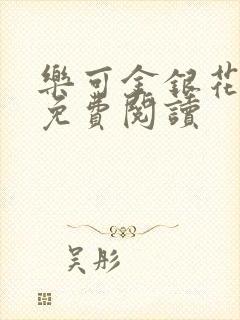 樂可金銀花
免費閱讀
吴彤